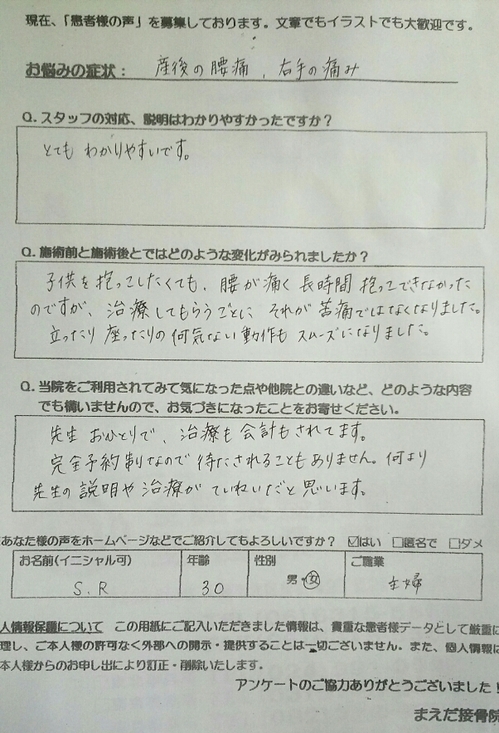 現在、「患者様の声」を募集しております。文章でもイラストでも大歓迎です。
お悩みの症状： 産後の腰痛、右手の痛み
Q. スタッフの対応、説明はわかりやすかったですか？
とても わかりやすいです。
Q. 施術前と施術後とではどのような変化がみられましたか？
子供を抱っこしたくても、腰が痛く長時間抱っこできなかった
のですが、治療してもらうごとに それが苦痛ではなくなりました。
立ったり座ったりの何気ない動作も スムーズになりました。
Q. 当院をご利用されてみて気になった点や他院との違いなど、どのような内容
でも構いませんので、お気づきになったことをお寄せください。
先生 おひとりで、治療も会計もされてます。
完全予約制なので 待たされることもありません。何より
先生の説明や治療が ていねいだと思います。
あなた様の声をホームページなどでご紹介してもよろしいですか？ ☑はい □匿名で □ダメ
お名前(イニシャル可) 年齢 性別 ご職業
S.R 30 男・女 主婦
人情報保護について この用紙にご記入いただきました情報は、貴重な患者様データとして厳重に
理し、ご本人様の許可なく外部への開示・提供することは一切ございません。また、個人情報は
本人様からのお申し出により訂正・削除いたします。
アンケートのご協力ありがとうございました！
まえだ接骨院